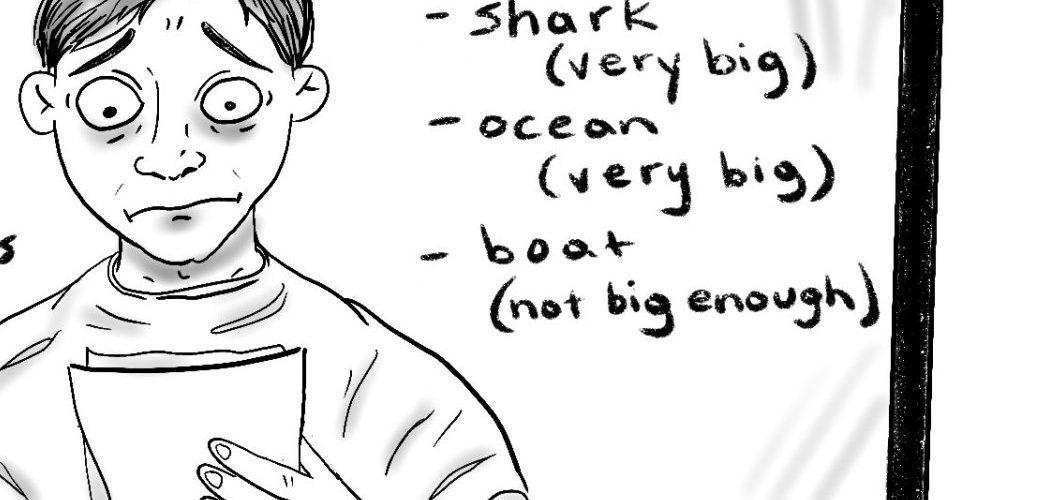 - shark
(very big)
- ocean
(very big)
- boat
(not big enough)